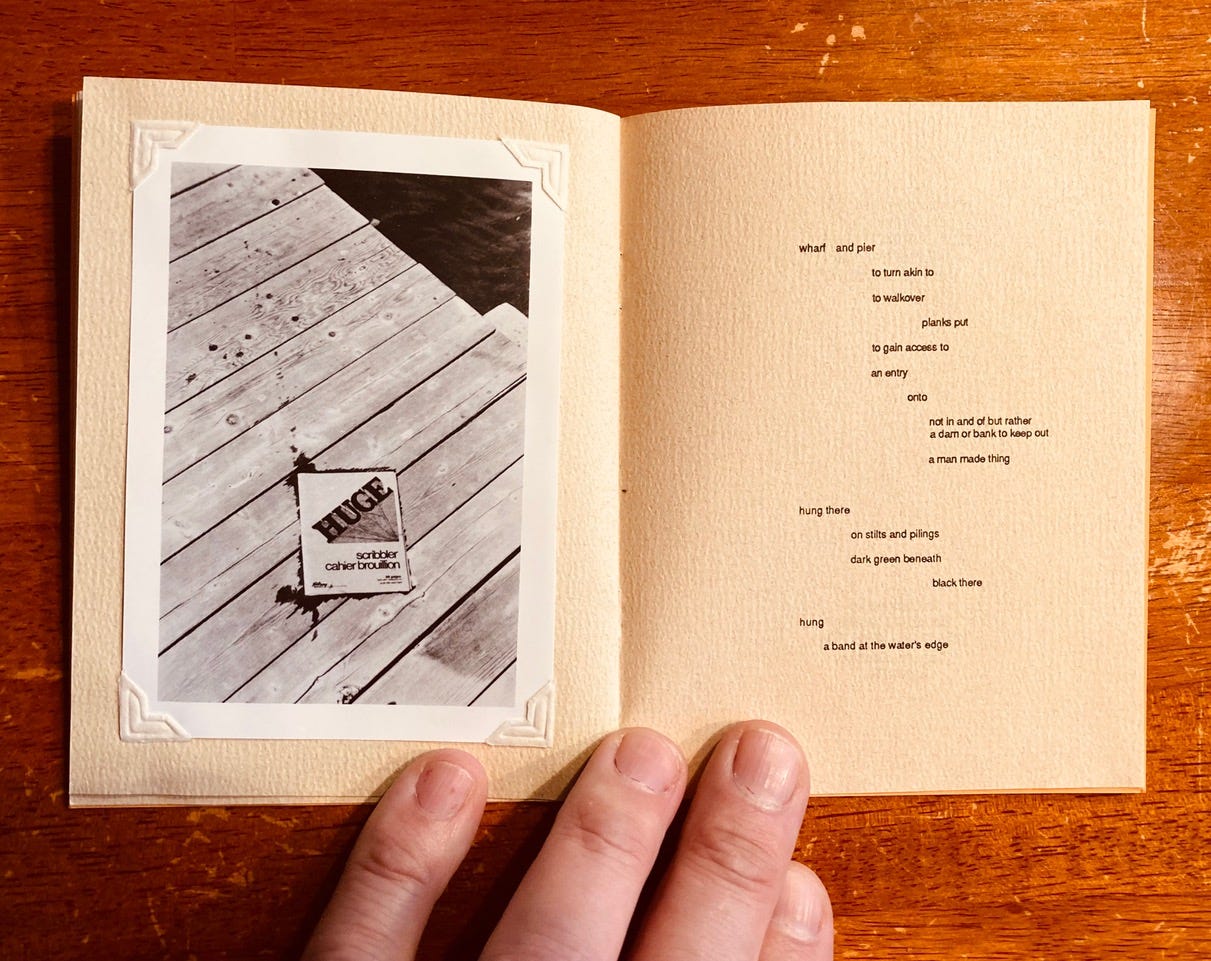 HUGE
scribbler
cahier brouillion
wharf and pier
to turn akin to
to walkover
planks put
to gain access to
an entry
onto
not in and of but rather
a dam or bank to keep out
a man made thing
hung there
on stilts and pilings
dark green beneath
black there
hung
a band at the water's edge